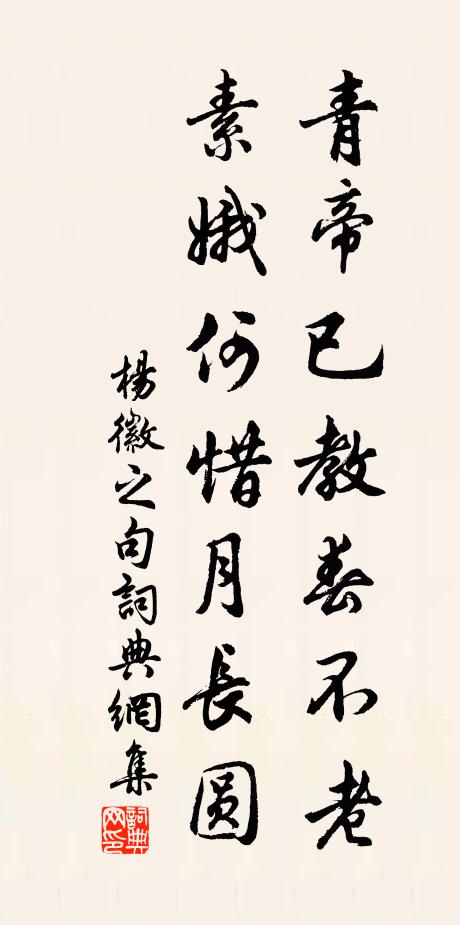 青帝已教春不老
素娥何惜月長圓
楊徽之句詞典網集
詞典網印